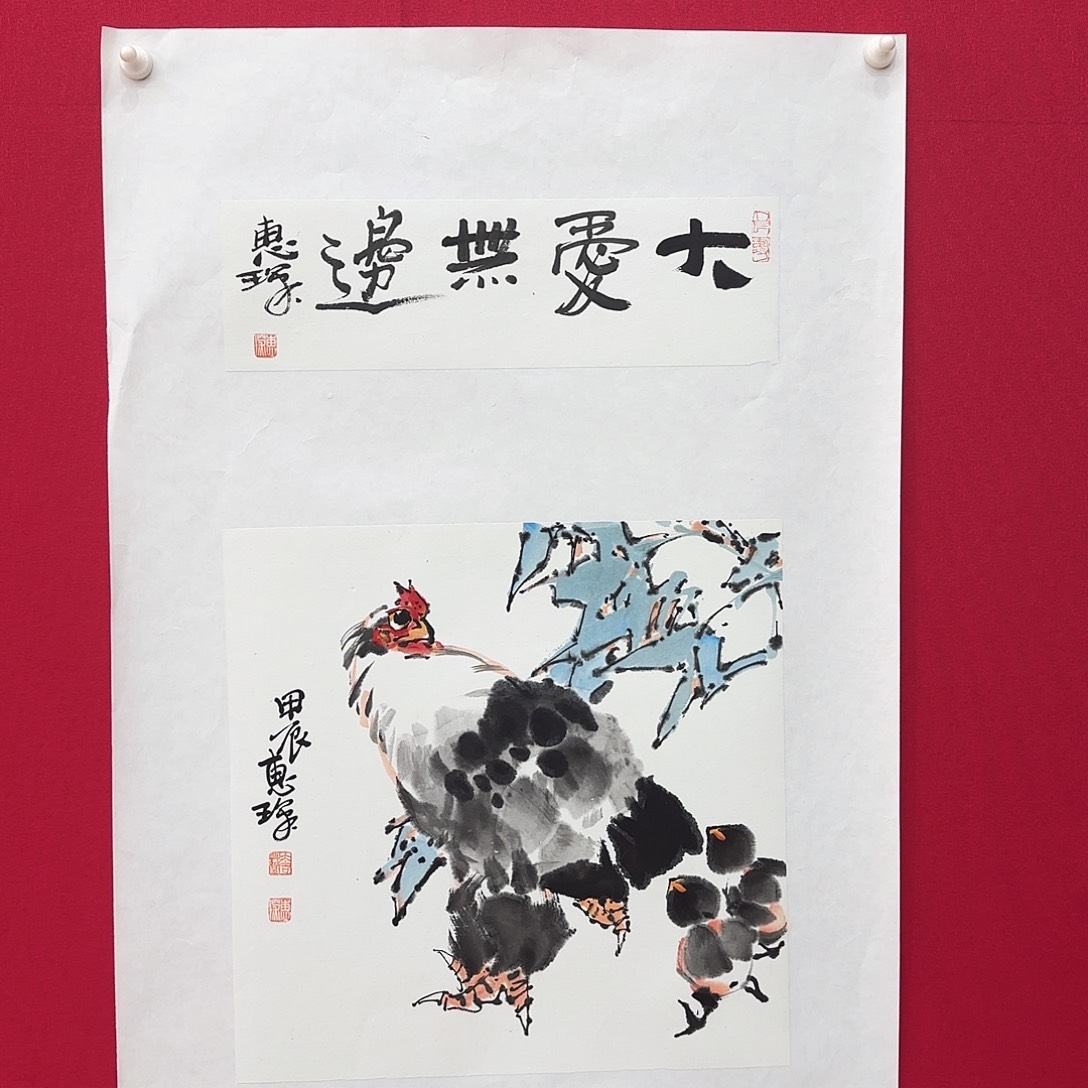 大愛無邊
惠琛
甲辰惠琛